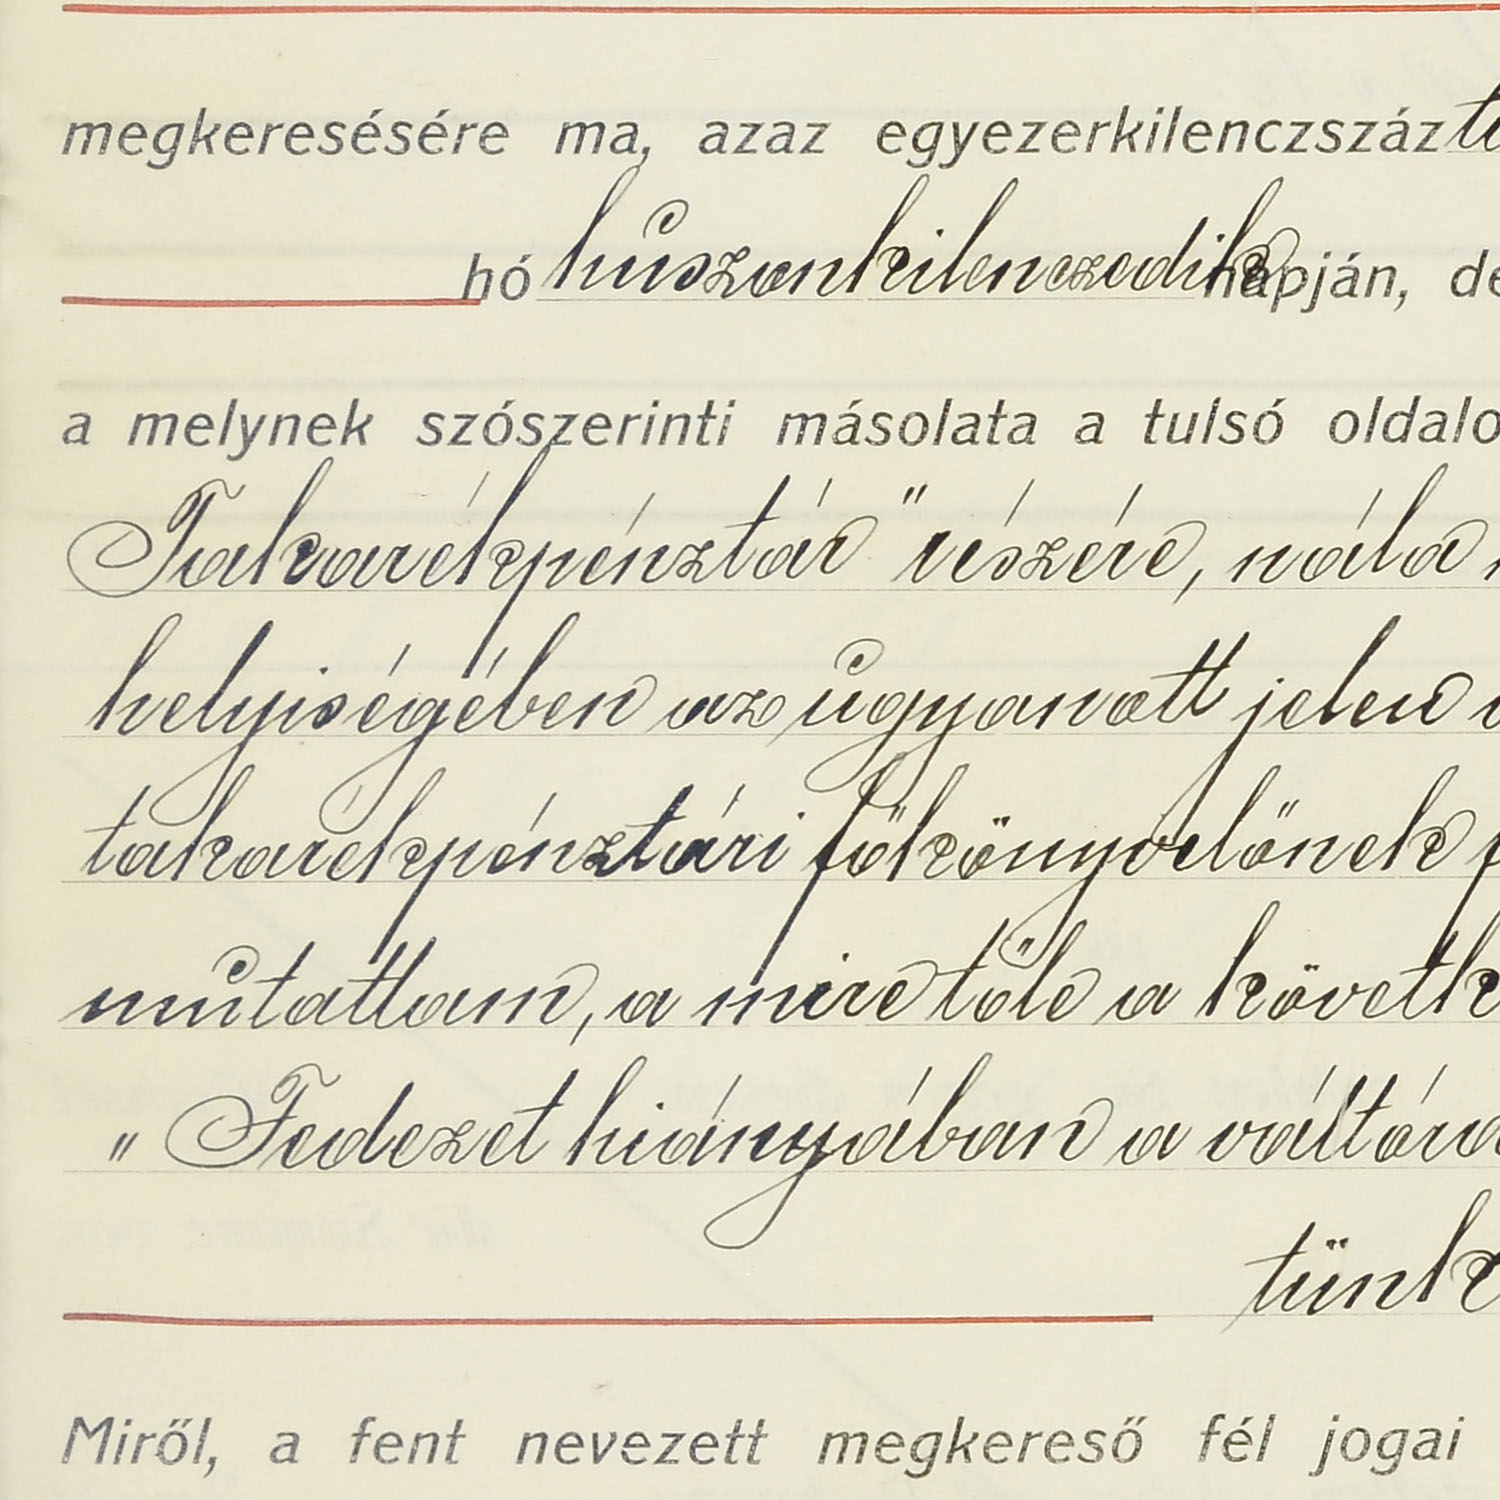 megkeresésére ma, azaz egyezerkilenczszáz
hó huszonkilenczedik napján,
a melynek szószerinti másolata a tulsó
Takarékpénztár" részére, nála
helyiségében az ugyanott jelen
takarékpénztári főkönyvelőnek
mutattam, a mire tőle a követk
„Fedezet hiányában a váltóra
tünk
Miről, a fent nevezett megkereső fél jogai